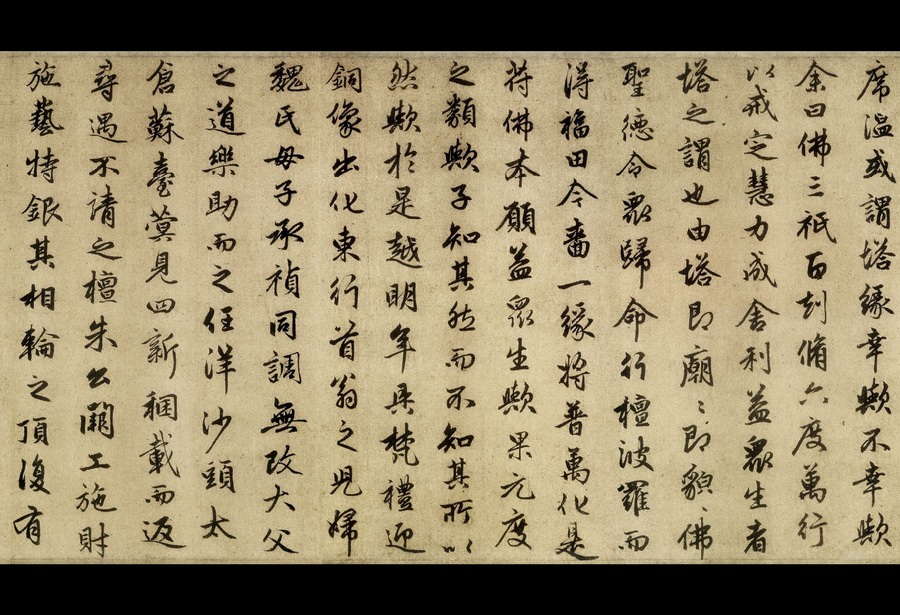 席溫或謂塔緣幸歟不幸歟
余曰佛三祇百刧脩六度萬行
以戒定慧力成舍利益眾生者
塔之謂也由塔即廟〻即貌〻佛
聖德令眾歸命行檀波羅而
得福田今耆一緣將普萬化是
符佛本願益眾生歟果元度
之類歟子知其然而不知其所以
然歟於是越明年具梵禮迎
銅像出化東行首翁之兒婦
魏氏母子承禎同調無改大父
之道樂助而之任洋沙頭太
倉蘇臺蓂見四新稇載而返
尋遇不請之檀朱公闢工施財
施藝特銀其相輪之頂復有